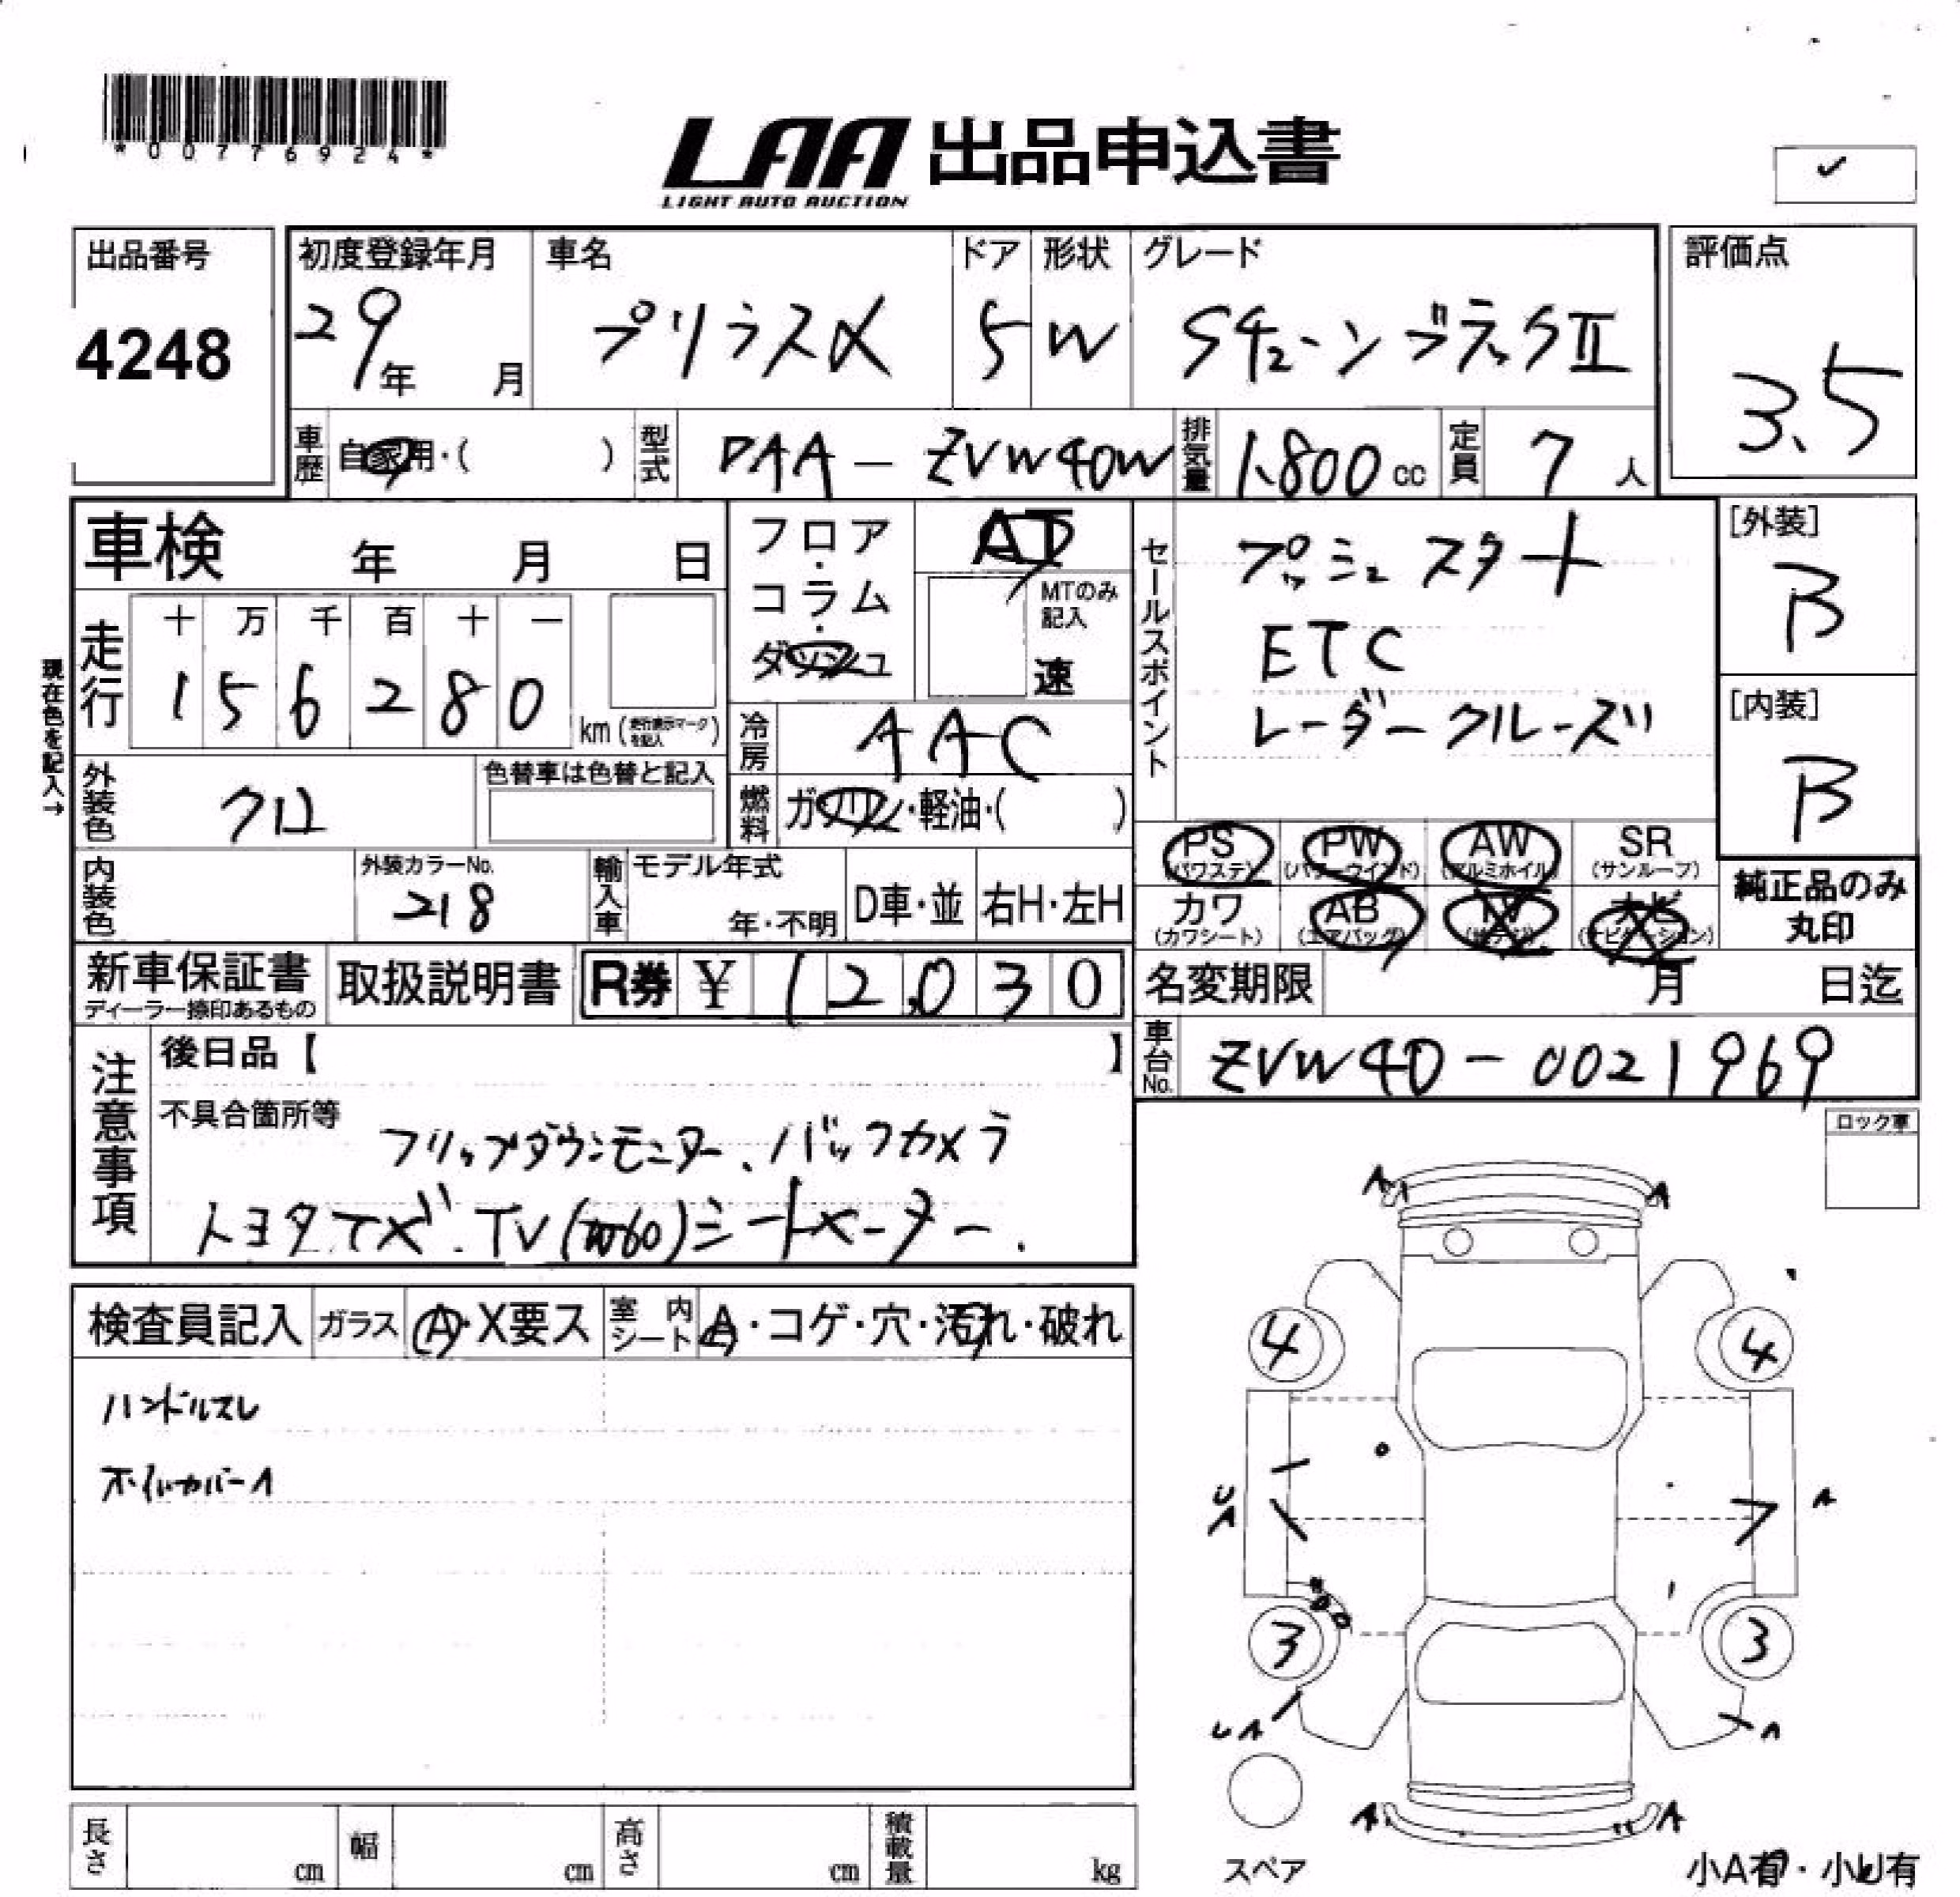 *00776924*
LAA 出品申込書
LIGHT AUTO AUCTION
✓
出品番号
4248
初度登録年月
29年 月
車名
プリウスα
ドア
5
形状
W
グレード
SチューンブラックⅡ
評価点
3.5
車歴
自家用・( )
型式
DAA-ZVW40W
排気量
1,800cc
定員
7人
車検 年 月 日
フロア・コラム・ダッシュ
AT
MTのみ記入
速
セールスポイント
プッシュスタート
ETC
レーダークルーズ
[外装]
B
[内装]
B
現在色を記入→
走行
十 万 千 百 十 一
1 5 6 2 8 0
km(走行表示マークを記入)
冷房
AAC
外装色
クロ
色替車は色替と記入
燃料
ガソリン・軽油・( )
PS (パワステ)
PW (パワーウインド)
AW (アルミホイル)
SR (サンルーフ)
内装色
外装カラーNo.
218
輸入車
モデル年式
年・不明
D車・並
右H・左H
カワ (カワシート)
AB (エアバッグ)
TV (地デジ)
ナビ (ナビゲーション)
純正品のみ丸印
新車保証書
ディーラー捺印あるもの
取扱説明書
R券 ¥ 12,030
名変期限 月 日迄
車台No.
ZVW40-0021969
注意事項
後日品【 】
不具合箇所等
フリップダウンモニター、バックカメラ
シートヒーター.
ロック車
検査員記入
ガラス
A・X要ス
室内シート
A・コゲ・穴・汚れ・破れ
ハンドルスレ
ホイルカバーA
A
A
4
4
U
A
A
3
3
UA
A
A
A
スペア
小A有・小U有
長さ cm
幅 cm
高さ cm
積載量 kg